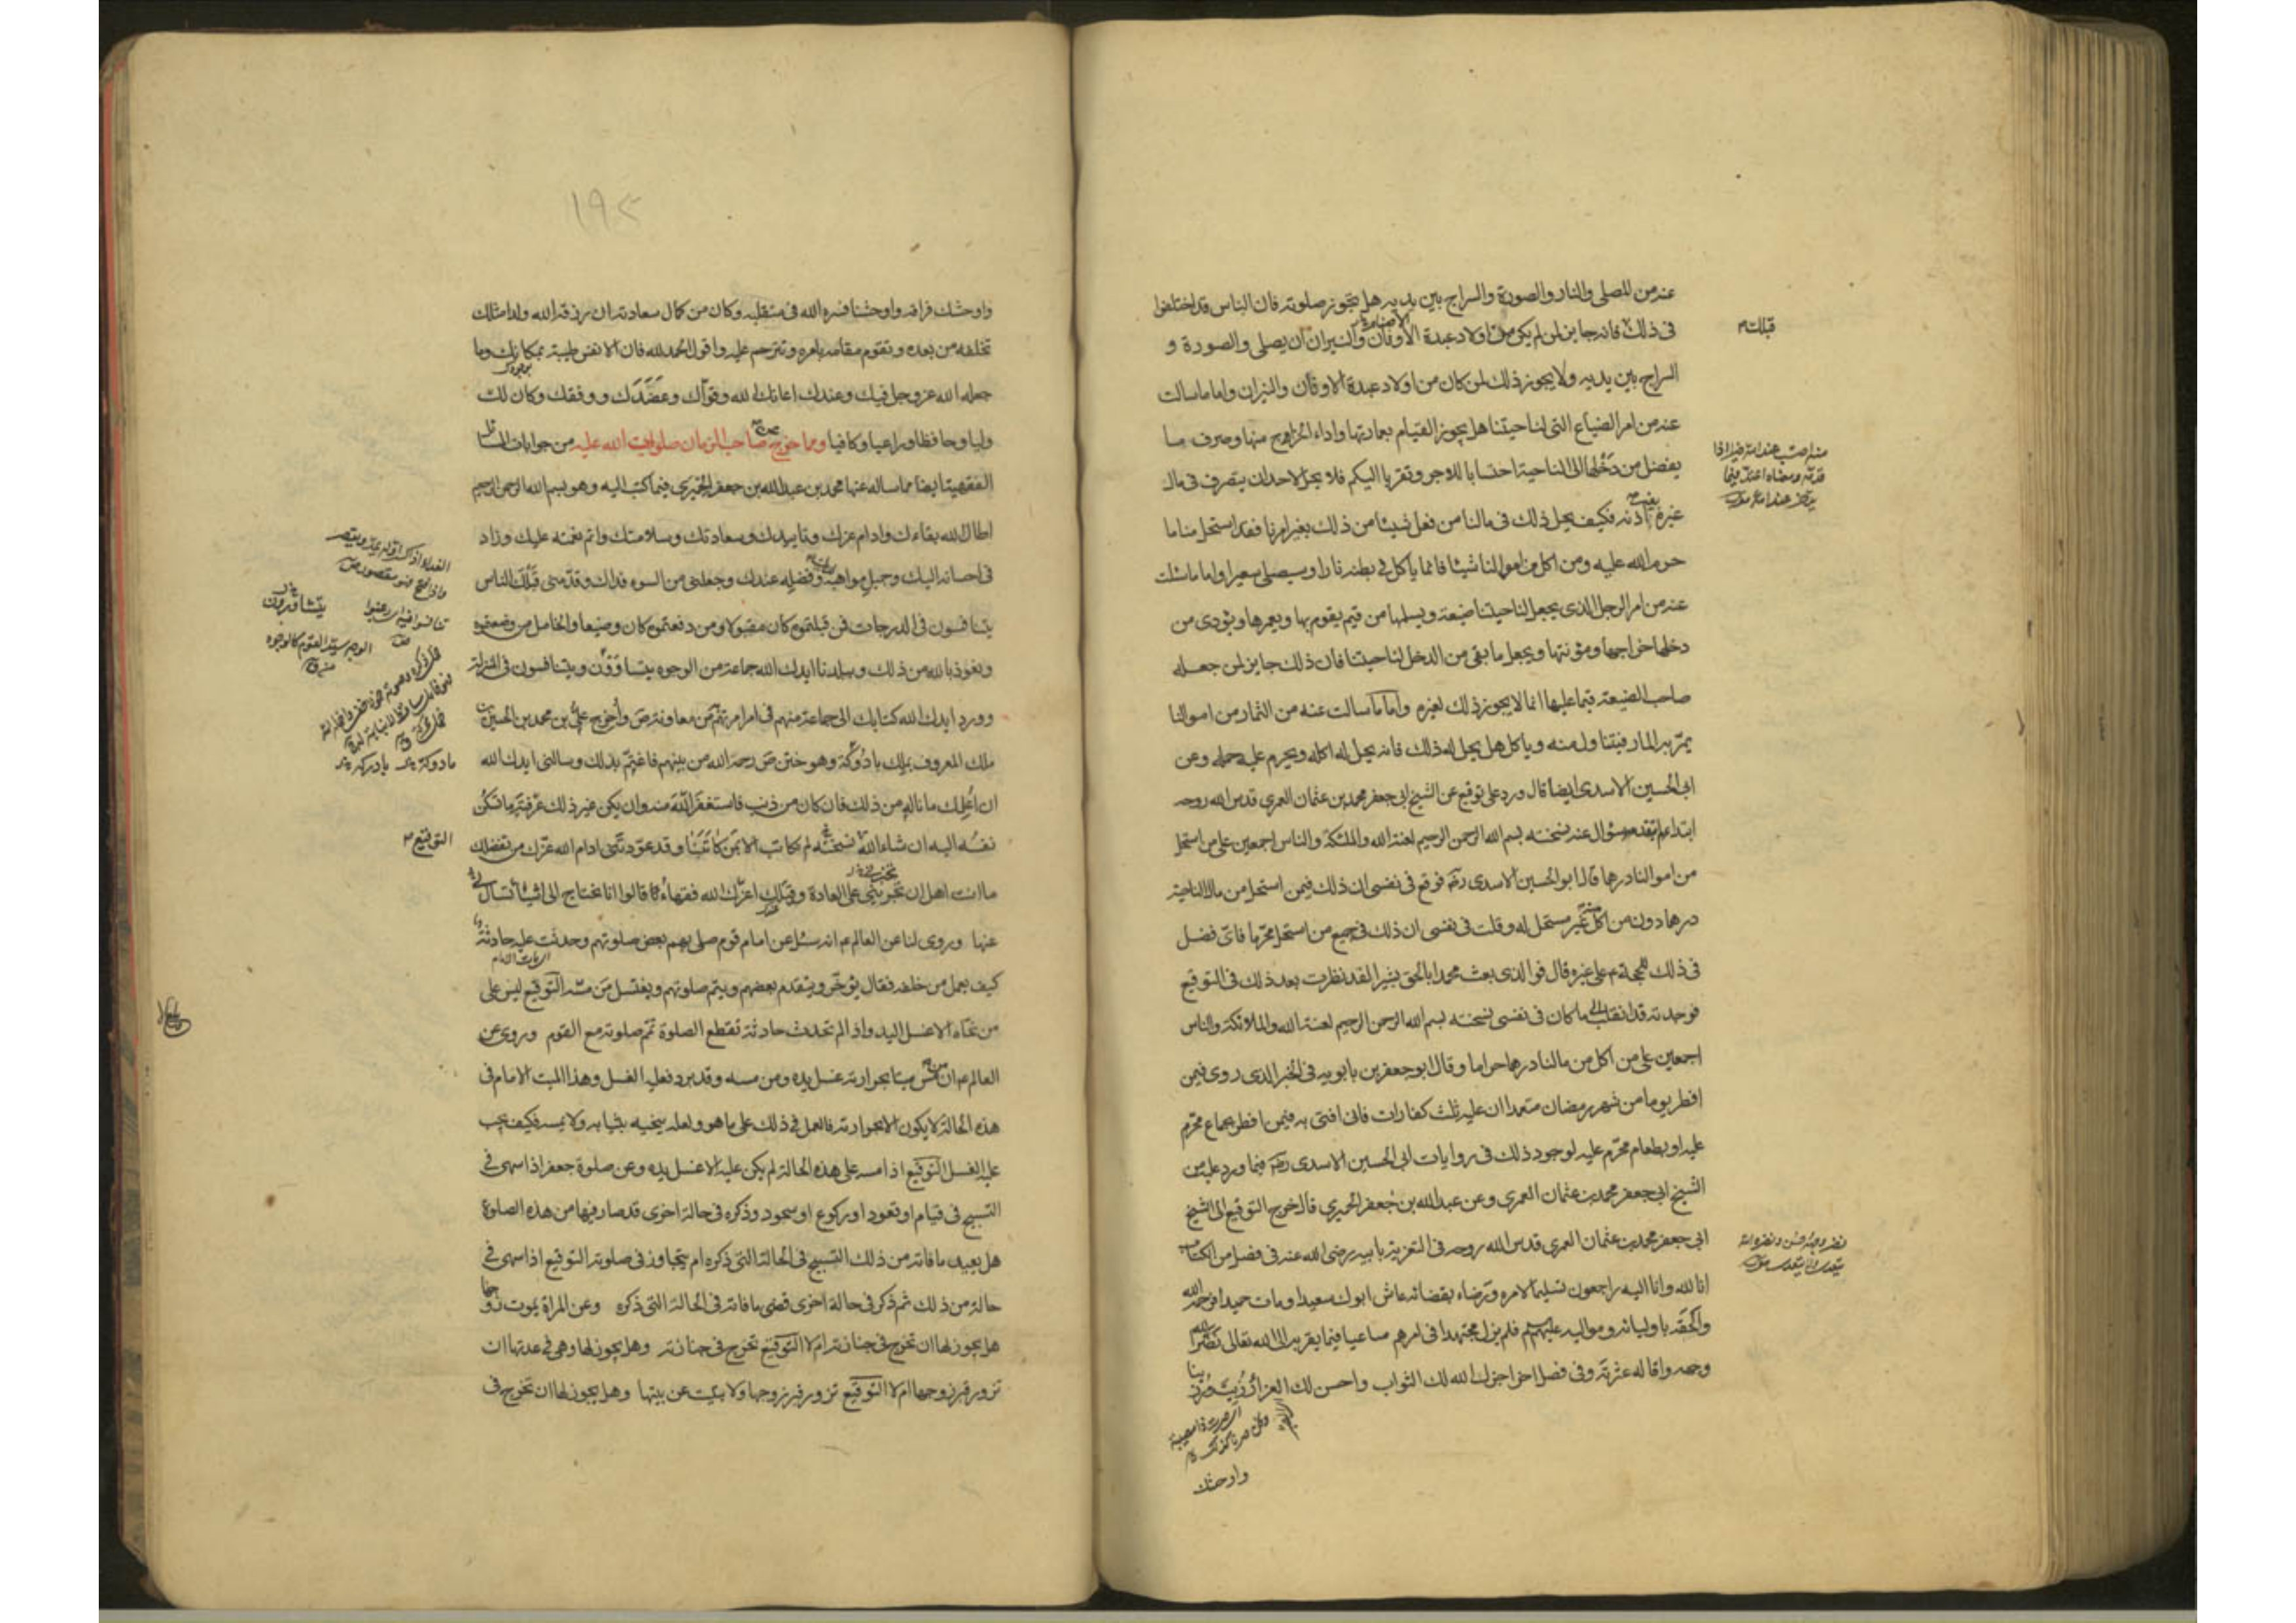 عنه من المصلى والنار والصورة والسراج بين يديه هل يجوز صلوته فان الناس قد اختلفوا
فى ذلك فانه جايز لمن لم يكن من اولاد عبدة الاوثان والنيران ان يصلى والصورة و
السراج بين يديه ولا يجوز ذلك لمن كان من اولاد عبدة الاوثان والنيران واما ما سالت
عنه من امر الضياع التى لناحيتنا هل يجوز القيام بعمارتها واداء الخراج منها وصرف ما
يفضل من دخلها الى الناحية احتسابا للاجر وتقربا اليكم فلا يحل لاحد ان يتصرف فى مال
غيره بغير اذنه فكيف يحل ذلك فى مالنا من فعل شيئا من ذلك بغير امرنا فقد استحل منا ما
حرم الله عليه ومن اكل من اموالنا شيئا فانما ياكل فى بطنه نارا وسيصلى سعيرا واما ما سالت
عنه من امر الرجل الذى يجعل لناحيتنا ضيعة ويسلمها من قيم يقوم بها ويعمرها ويؤدى من
دخلها خراجها ومؤنتها ويجعل ما بقى من الدخل لناحيتنا فان ذلك جايز لمن جعله
صاحب الضيعة قيما عليها انما لا يجوز ذلك لغيره واما ما سالت عنه من الثمار من اموالنا
يمر به المار فيتناول منه وياكل هل يحل له ذلك فانه يحل له اكله ويحرم عليه حمله وعن
ابى الحسين الاسدى ايضا قال ورد على توقيع عن الشيخ ابى جعفر محمد بن عثمان العمرى قدس الله روحه
ابتداء لم يتقدمه سؤال عنه نسخته بسم الله الرحمن الرحيم لعنة الله والملئكة والناس اجمعين على من استحل
من اموالنا درهما قال ابو الحسين الاسدى رحمه فوقع فى نفسى ان ذلك فيمن استحل من مال الناحية
درهما دون من اكل منه غير مستحل له وقلت فى نفسى ان ذلك فى جميع من استحل محرما فاى فضل
فى ذلك للحجة م على غيره قال فوالذى بعث محمدا بالحق بشيرا لقد نظرت بعد ذلك فى التوقيع
فوجدته قد انقلب الى ما كان فى نفسى نسخته بسم الله الرحمن الرحيم لعنة الله والملائكة والناس
اجمعين على من اكل من مالنا درهما حراما وقال ابو جعفر بن بابويه فى الخبر الذى روى فيمن
افطر يوما من شهر رمضان متعمدا ان عليه ثلث كفارات فانى افتى به فيمن افطر بجماع محرم
عليه او بطعام محرم عليه لوجود ذلك فى روايات ابى الحسين الاسدى رحمه فيما ورد عليه من
الشيخ ابى جعفر محمد بن عثمان العمرى وعن عبد الله بن جعفر الحميرى قال خرج التوقيع الى الشيخ
ابى جعفر محمد بن عثمان العمرى قدس الله روحه فى التعزية بابيه رضى الله عنه فى فصل من الكتاب
انا لله وانا اليه راجعون تسليما لامره ورضاء بقضائه عاش ابوك سعيدا ومات حميدا فرحمه الله
والحقه باوليائه ومواليه عليهم فلم يزل مجتهدا فى امرهم ساعيا فيما يقربه الى الله تعالى نضر الله
وجهه واقاله عثرته وفى فصل اخر اجزل الله لك الثواب واحسن لك العزاء رزيت ورزينا
واوحشك
قبلك م
واوحشك فراقه واوحشنا فسره الله فى منقلبه وكان من كمال سعادته ان رزقه الله ولدا مثلك
تخلفه من بعده وتقوم مقامه بامره وتترحم عليه واقول الحمد لله فان الانفس طيبة بمكانك وما
جعله الله عز وجل فيك وعندك اعانك الله وقواك وعضدك ووفقك وكان لك
وليا وحافظا وراعيا وكافيا ومما خرج عن صاحب الزمان صلوات الله عليه من جوابات المسائل
الفقهية ايضا مما ساله عنها محمد بن عبد الله بن جعفر الحميرى فيما كتب اليه وهو بسم الله الرحمن الرحيم
اطال الله بقاءك وادام عزك وتاييدك وسعادتك وسلامتك واتم نعمته عليك وزاد
فى احسانه اليك وجميل مواهبه لديك وفضله عندك وجعلنى من السوء فداك وقدمنى قبلك الناس
يتنافسون فى الدرجات فمن قبلتموه كان مقبولا ومن دفعتموه كان وضيعا والخامل من وضعتموه
ونعوذ بالله من ذلك وببلدنا ايدك الله جماعة من الوجوه يتساوون ويتنافسون فى المنزلة
وورد ايدك الله كتابك الى جماعة منهم فى امر امرتهم من معاونة ص واخرج على بن محمد بن الحسين بن
ملك المعروف بملك بادوكة وهو ختن ص رحمه الله من بينهم فاغتم بذلك وسالنى ايدك الله
ان اعلمك ما ناله من ذلك فان كان من ذنب فاستغفر الله منه وان يكن غير ذلك عرفته ما تسكن
نفسه اليه ان شاء الله نسخته لم نكاتب الا من كاتبنا وقد عودتنى ادام الله عزك من تفضلك
ما انت اهل ان تجرينى على العادة وقبلك اعزك الله فقهاء قالوا انا نحتاج الى اشياء تسال لى
عنها وروى لنا عن العالم م انه سئل عن امام قوم صلى بهم بعض صلوتهم وحدثت عليه حادثة
كيف يعمل من خلفه فقال يؤخر ويتقدم بعضهم ويتم صلوتهم ويغتسل من مسه التوقيع ليس على
من نحاه الا غسل اليد واذا لم تحدث حادثة تقطع الصلوة تمم صلوته مع القوم وروى عن
العالم م ان من مس ميتا بحرارته غسل يده ومن مسه وقد برد فعليه الغسل وهذا الميت الامام فى
هذه الحالة لا يكون الا بحرارته فالعمل فى ذلك على ما هو ولعله ينحيه بثيابه ولا يمسه فكيف يجب
عليه الغسل التوقيع اذا مسه على هذه الحالة لم يكن عليه الا غسل يده وعن صلوة جعفر اذا سهى فى
التسبيح فى قيام او قعود او ركوع او سجود وذكره فى حالة اخرى قد صار فيها من هذه الصلوة
هل يعيد ما فاته من ذلك التسبيح فى الحالة التى ذكره ام يتجاوز فى صلوته التوقيع اذا سهى فى
حالة من ذلك ثم ذكر فى حالة اخرى قضى ما فاته فى الحالة التى ذكره وعن المراة يموت زوجها
هل يجوز لها ان تخرج فى جنازته ام لا التوقيع تخرج فى جنازته وهل يجوز لها وهى فى عدتها ان
تزور قبر زوجها ام لا التوقيع تزور قبر زوجها ولا تبيت عن بيتها وهل يجوز لها ان تخرج فى
التوقيع م